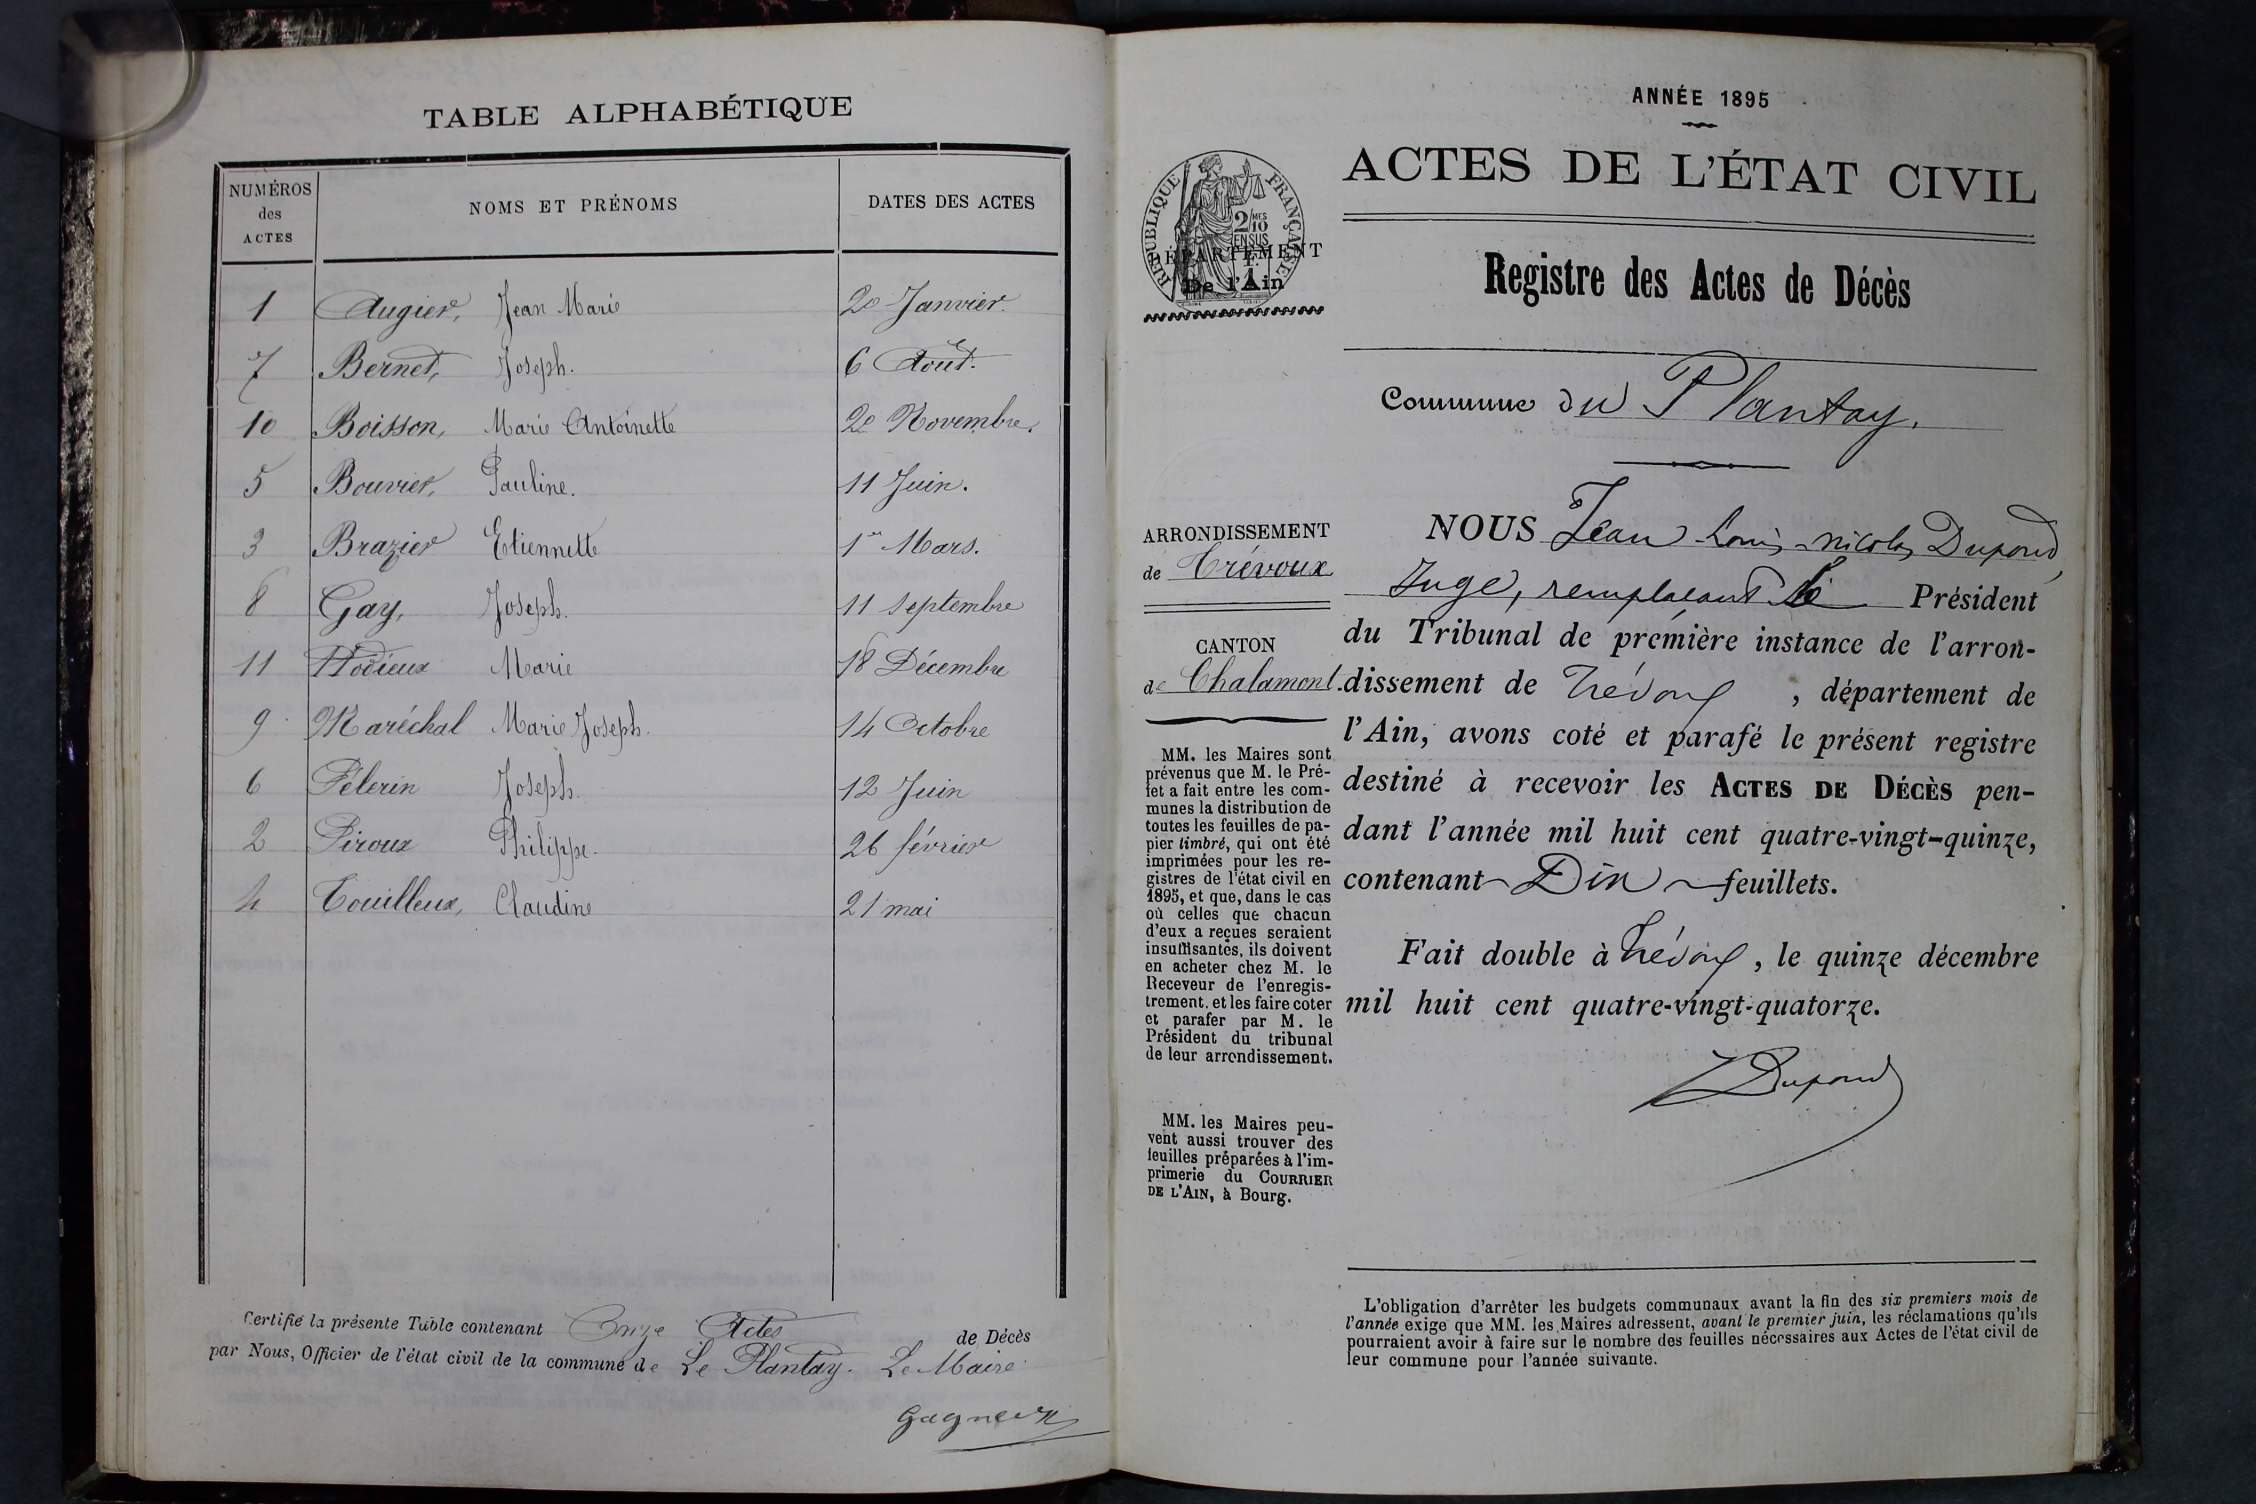 TABLE ALPHABÉTIQUE
NUMÉROS des ACTES | NOMS ET PRÉNOMS | DATES DES ACTES
1 Augier, Jean Marie 20 Janvier.
7 Bernet, Joseph. 6 Août.
10 Boisson, Marie Antoinette 20 Novembre.
5 Bouvier, Pauline. 11 Juin.
3 Brazier Etiennette 1er Mars.
8 Gay, Joseph. 11 septembre
11 Hodieux Marie 18 Décembre
9 Maréchal Marie Joseph. 14 Octobre
6 Pélerin Joseph. 12 Juin
2 Piroux Philippe. 26 février
4 Touilleux, Claudine 21 mai
Certifié la présente Table contenant Onze Actes de Décès
par Nous, Officier de l'état civil de la commune de Le Plantay. Le Maire
Gagneux
ANNÉE 1895
ACTES DE L'ÉTAT CIVIL
RÉPUBLIQUE FRANÇAISE
2/10 MES
EN SUS
DÉPARTEMENT
De l'Ain
Registre des Actes de Décès
Commune du Plantay.
ARRONDISSEMENT
de Trévoux
CANTON
de Chalamont.
MM. les Maires sont
prévenus que M. le Pré-
fet a fait entre les com-
munes la distribution de
toutes les feuilles de pa-
pier timbré, qui ont été
imprimées pour les re-
gistres de l'état civil en
1895, et que, dans le cas
où celles que chacun
d'eux a reçues seraient
insuffisantes, ils doivent
en acheter chez M. le
Receveur de l'enregis-
trement, et les faire coter
et parafer par M. le
Président du tribunal
de leur arrondissement.
MM. les Maires peu-
vent aussi trouver des
feuilles préparées à l'im-
primerie du COURRIER
DE L'AIN, à Bourg.
NOUS Jean Louis Nicolas Dupond,
Juge, remplaçant le Président
du Tribunal de première instance de l'arron-
dissement de Trévoux, département de
l'Ain, avons coté et parafé le présent registre
destiné à recevoir les ACTES DE DÉCÈS pen-
dant l'année mil huit cent quatre-vingt-quinze,
contenant Dix feuillets.
Fait double à Trévoux, le quinze décembre
mil huit cent quatre-vingt-quatorze.
Dupond
L'obligation d'arrêter les budgets communaux avant la fin des six premiers mois de
l'année exige que MM. les Maires adressent, avant le premier juin, les réclamations qu'ils
pourraient avoir à faire sur le nombre des feuilles nécessaires aux Actes de l'état civil de
leur commune pour l'année suivante.